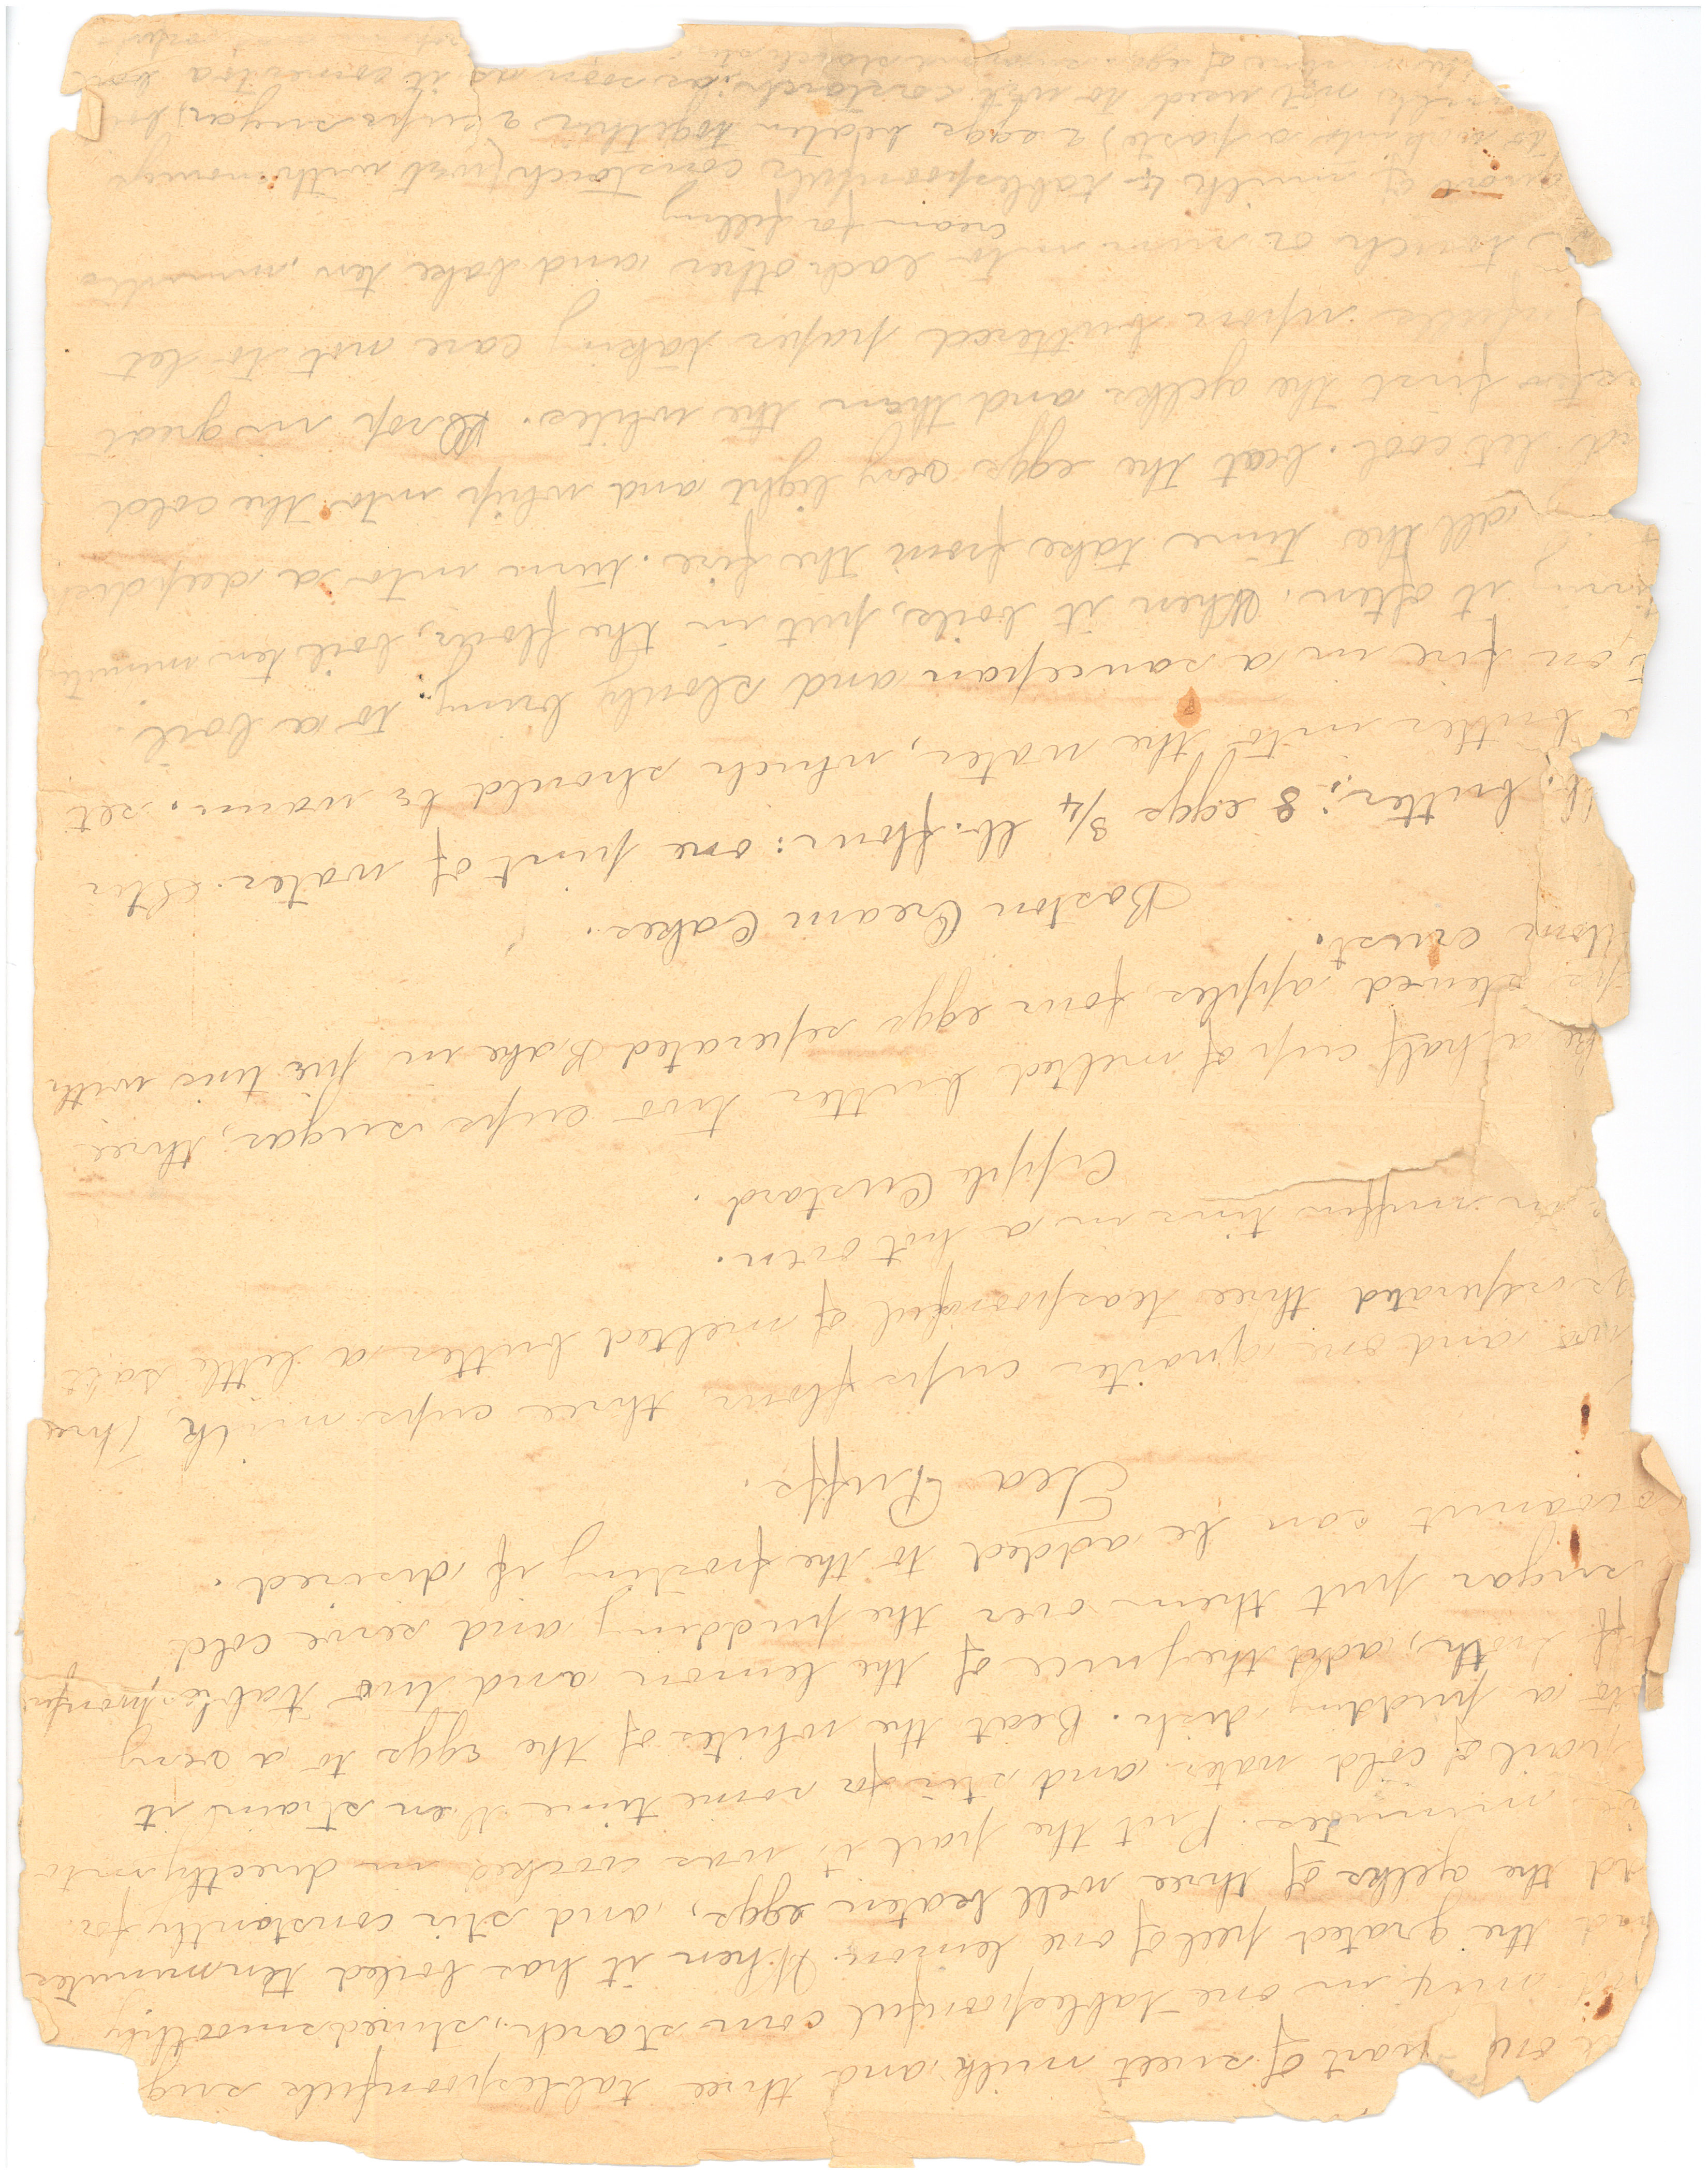 one quart of sweet milk and three tablespoonfuls sug
mix in one tablespoonful corn starch, stired smoothly
the grated peel of one lemon. When it has boiled ten minutes
the yelks of three well beaten eggs, and stir constantly for
minutes. Put the pail it was cooked in directly into
pail of cold water and stir for some time then strain it
to a pudding dish. Beat the whites of the eggs to a very
froth, add the juice of the lemon and two tablespoonfu
sugar put them over the pudding and serve cold
can be added to the frosting if disired.
Tea Puffs.
two and one quarter cups flour, three cups milk, three
seperated three teaspoonful of melted butter a little salt
in muffin tins in a hot oven.
Apple Custard.
a half cup of melted butter two cups sugar, three
stewed apples, four eggs seperated Bake in pie tins with
crust.
Boston Cream Cakes.
lb. butter; 8 eggs 3/4 lb. flour: one pint of water. Stir
butter into the water, which should be warm. set
on fire in a saucepan and slowly bring to a boil
it often. When it boils, put in the flour, boil ten minute
all the time take from the fire. turn into a deep dish
let cool. beat the eggs very light and whip into the cold
first the yelks and then the whites. Drop in great
upon buttered paper taking care not to let
touch or run into each other and bake ten minutes
Cream for filling
quart of milk 4 tablespoonfuls cornstarch (wet with enough
milk to a paste) 2 eggs beaten together 2 cups sugar,
milk not used to wet cornstarch. as soon as it comes to a boil